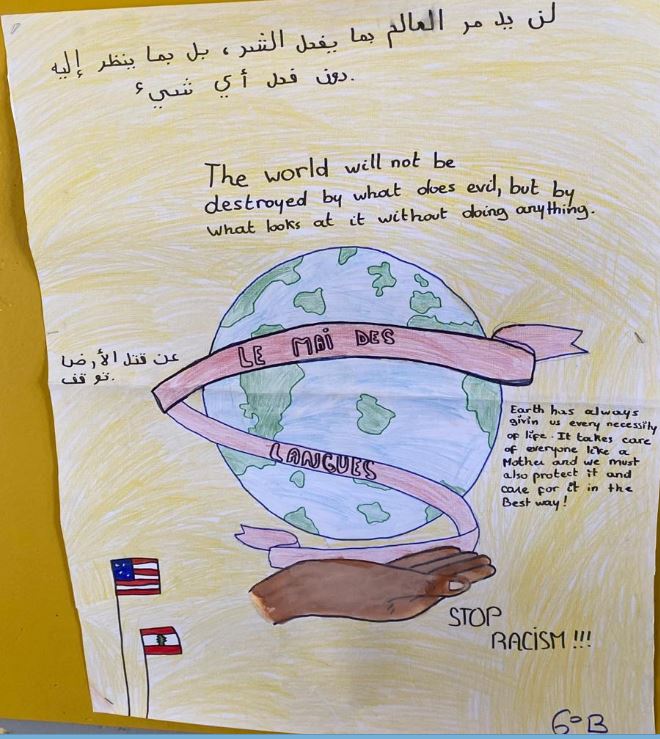 لن يد مر العالم بما يفعل الشر ، بل بما ينظر إليه
دون فعل أي شيء.
The world will not be
destroyed by what does evil, but by
what looks at it without doing anything.
LE MAI DES
LANGUES
عن قتل الأرضا
توقف.
Earth has always
givin us every necessity
of life. It takes care
of everyone like a
Mother and we must
also protect it and
care for it in the
Best way!
STOP
RACISM!!!
6°B